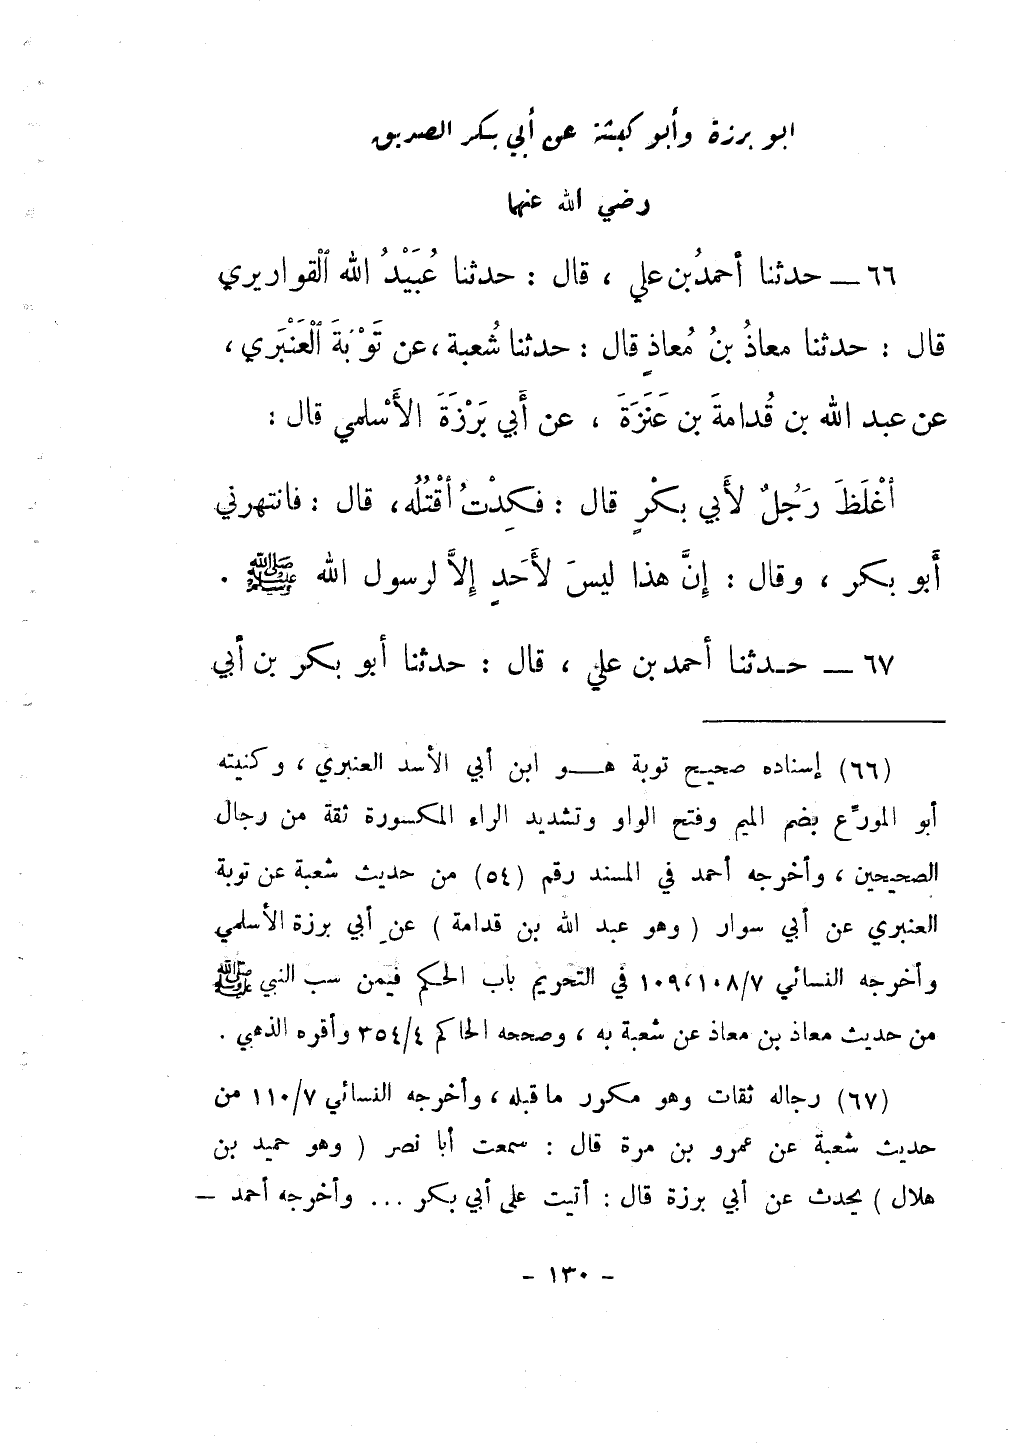 ابو برزة وأبو كبشة عن أبي بكر الصديق
رضي الله عنهما
٦٦ ــ حدثنا أحمدُ بن علي ، قال : حدثنا عُبَيْدُ الله ٱلْقواريري
قال : حدثنا معاذُ بنُ مُعاذٍ قال : حدثنا شُعبة ، عن تَوْبَةَ ٱلْعَنْبَري ،
عن عبد الله بن قُدامةَ بن عَنَزَةَ ، عن أَبي بَرْزَةَ الأَسْلمي قال :
أغْلَظَ رَجُلٌ لأَبي بكْرٍ قال : فكِدْتُ أقْتُلُه ، قال : فانتهرني
أَبو بكر ، وقال : إنَّ هذا ليسَ لأَحَدٍ إلاَّ لرسول الله ﷺ .
٦٧ ــ حـدثنا أحمد بن علي ، قال : حدثنا أبو بكر بن أبي
(٦٦) إسناده صحيح توبة هــو ابن أبي الأسد العنبري ، وكنيته
أبو المورِّع بضم الميم وفتح الواو وتشديد الراء المكسورة ثقة من رجال
الصحيحين ، وأخرجه أحمد في المسند رقم (٥٤) من حديث شعبة عن توبة
العنبري عن أبي سوار ( وهو عبد الله بن قدامة ) عن أبي برزة الأسلمي
وأخرجه النسائي ١٠٩،١٠٨/٧ في التحريم باب الحكم فيمن سب النبي ﷺ
من حديث معاذ بن معاذ عن شعبة به ، وصححه الحاكم ٣٥٤/٤ وأقره الذهبي .
(٦٧) رجاله ثقات وهو مكرر ما قبله ، وأخرجه النسائي ١١٠/٧ من
حديث شعبة عن عمرو بن مرة قال : سمعت أبا نصر ( وهو حميد بن
هلال ) يحدث عن أبي برزة قال : أتيت على أبي بكر ... وأخرجه أحمد ــ
- ١٣٠ -